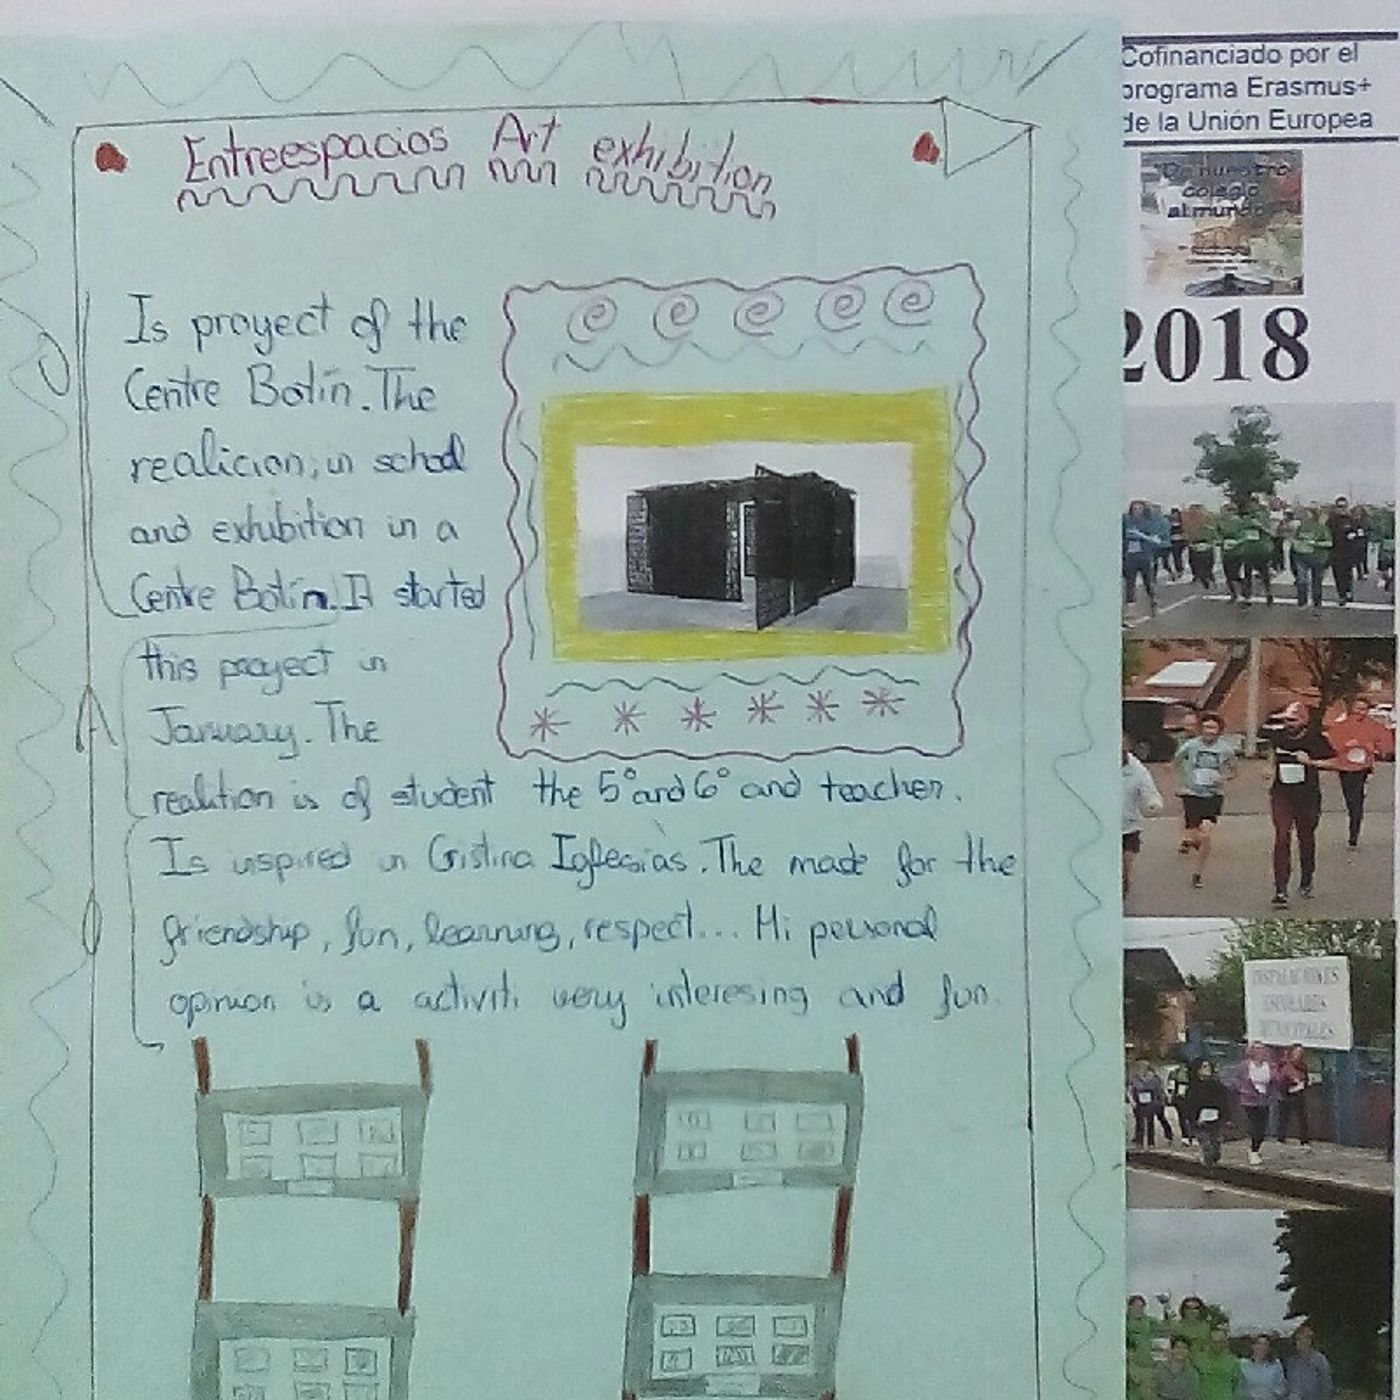 Entreespacios Art exhibition
Is proyect of the
Centre Botín. The
realicion, in school
and exhibition in a
Centre Botín. It started
this proyect in
January. The
realition is of student the 5º and 6º and teacher.
Is inspired in Cristina Iglesias. The made for the
friendship, fun, learning, respect... Mi personal
opinion is a activiti very interesing and fun.
Cofinanciado por el
programa Erasmus+
de la Unión Europea
De nuestro
colegio
al mundo
2018
INSTALACIONES
ESCOLARES
MUNICIPALES